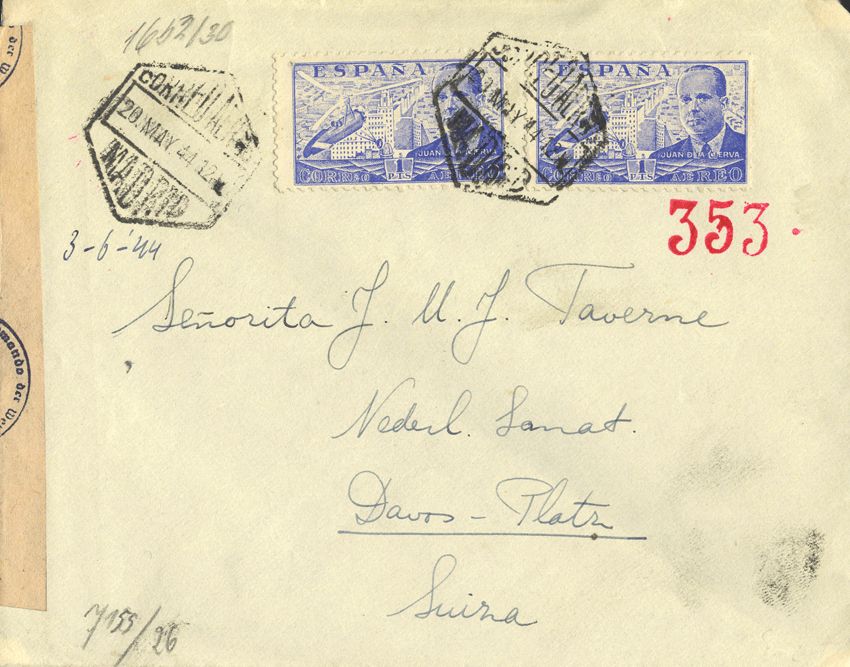 1652/30
CORREO AEREO
20.MAY 44.12
MADRID
ESPAÑA
JUAN DE LA CIERVA
CORREO 1 PTS AEREO
ESPAÑA
JUAN DE LA CIERVA
CORREO 1 PTS AEREO
20.MAY 44
MADRID
353
3-6-'44
Señorita J. M. J. Taverne
Nederl. Sanat.
Davos-Platz
Suiza
mando der We
der W
7155/26